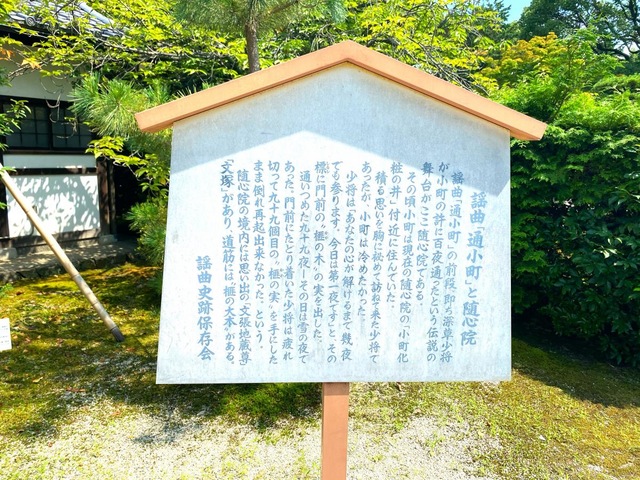 謡曲「通小町」と随心院
謡曲「通小町」の前段、即ち深草少将
が小町の許に百夜通ったという伝説の
舞台がここ随心院である。
その頃小町は現在の随心院の「小町化
粧の井」付近に住んでいた。
積る思いを胸に秘めて訪ねて来た少将で
あったが、小町は冷めたかった。
少将は「あなたの心が解けるまで幾夜
でも参ります。今日は第一夜です」と、その
標に門前の〝榧の木〟の実を出した。
通いつめた九十九夜—その日は雪の夜で
あった。門前にたどり着いた少将は疲れ
切って九十九個目の〝榧の実〟を手にした
まま倒れ再起出来なかった、という。
随心院の境内には思い出の「文張地蔵尊」
「文塚」があり、道筋には「榧の大木」がある。
謡曲史跡保存会